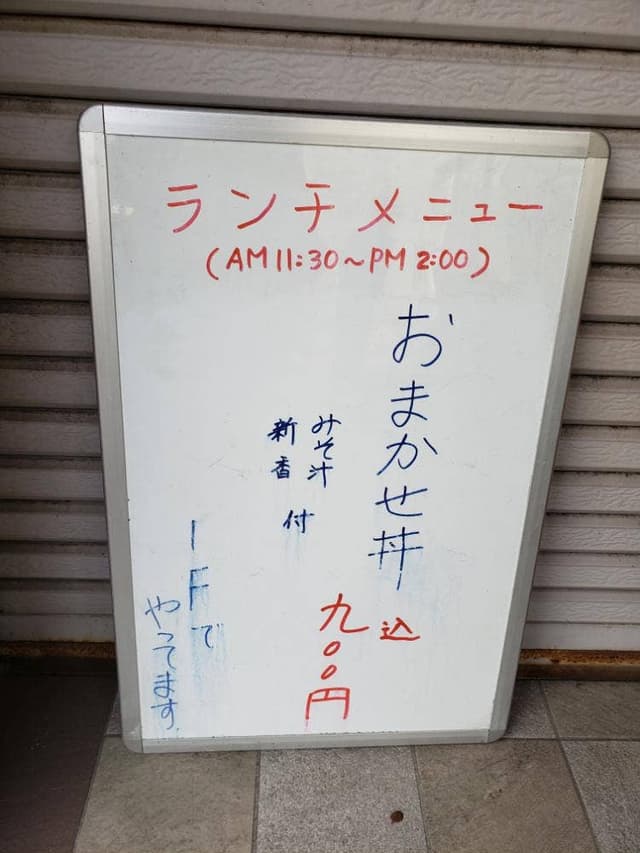 ランチメニュー
(AM11:30～PM2:00)
おまかせ丼
込
九〇〇円
みそ汁
新香
付
1Fで
やってます